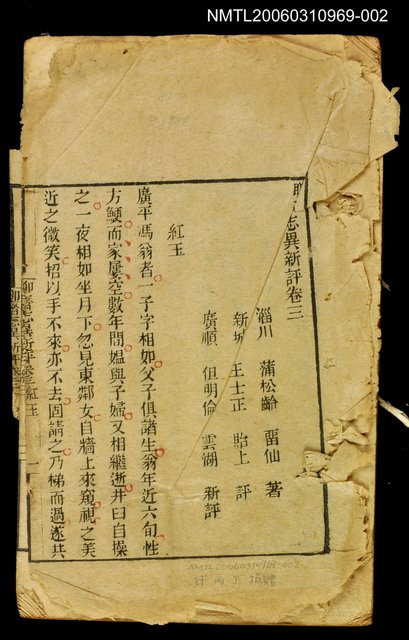 NMTL20060310969-002
志異新評卷三
淄川 蒲松齡 留仙 著
新城 王士正 貽上 評
廣順 但明倫 雲湖 新評
紅玉
廣平馮翁者一子字相如父子俱諸生翁年近六旬性
方鯁而家屢空數年間媼與子婦又相繼逝井臼自操
之一夜相如坐月下忽見東鄰女自牆上來窺視之美
近之微笑招以手不來亦不去固請之乃梯而過遂共
聊齋志異新評卷三 紅玉 一
NMTL20060310969-002